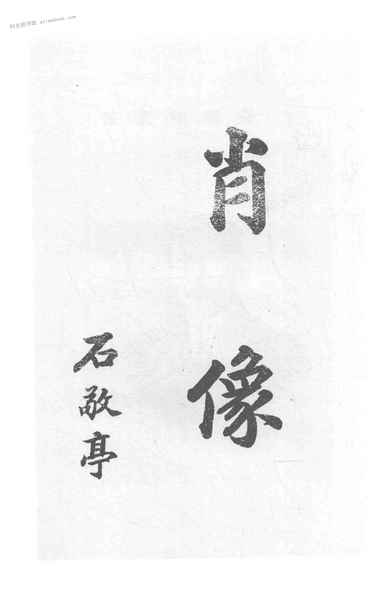 肖像
石敬亭